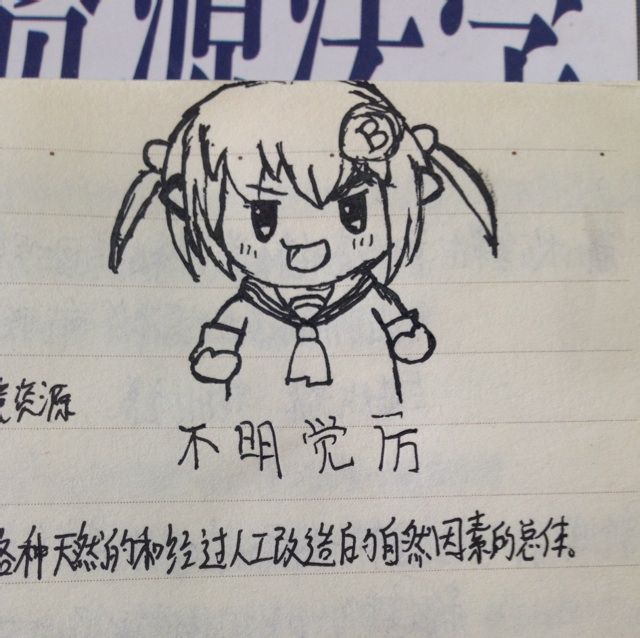 资源法学
B
资源
不明觉厉
各种天然的和经过人工改造的自然因素的总体。